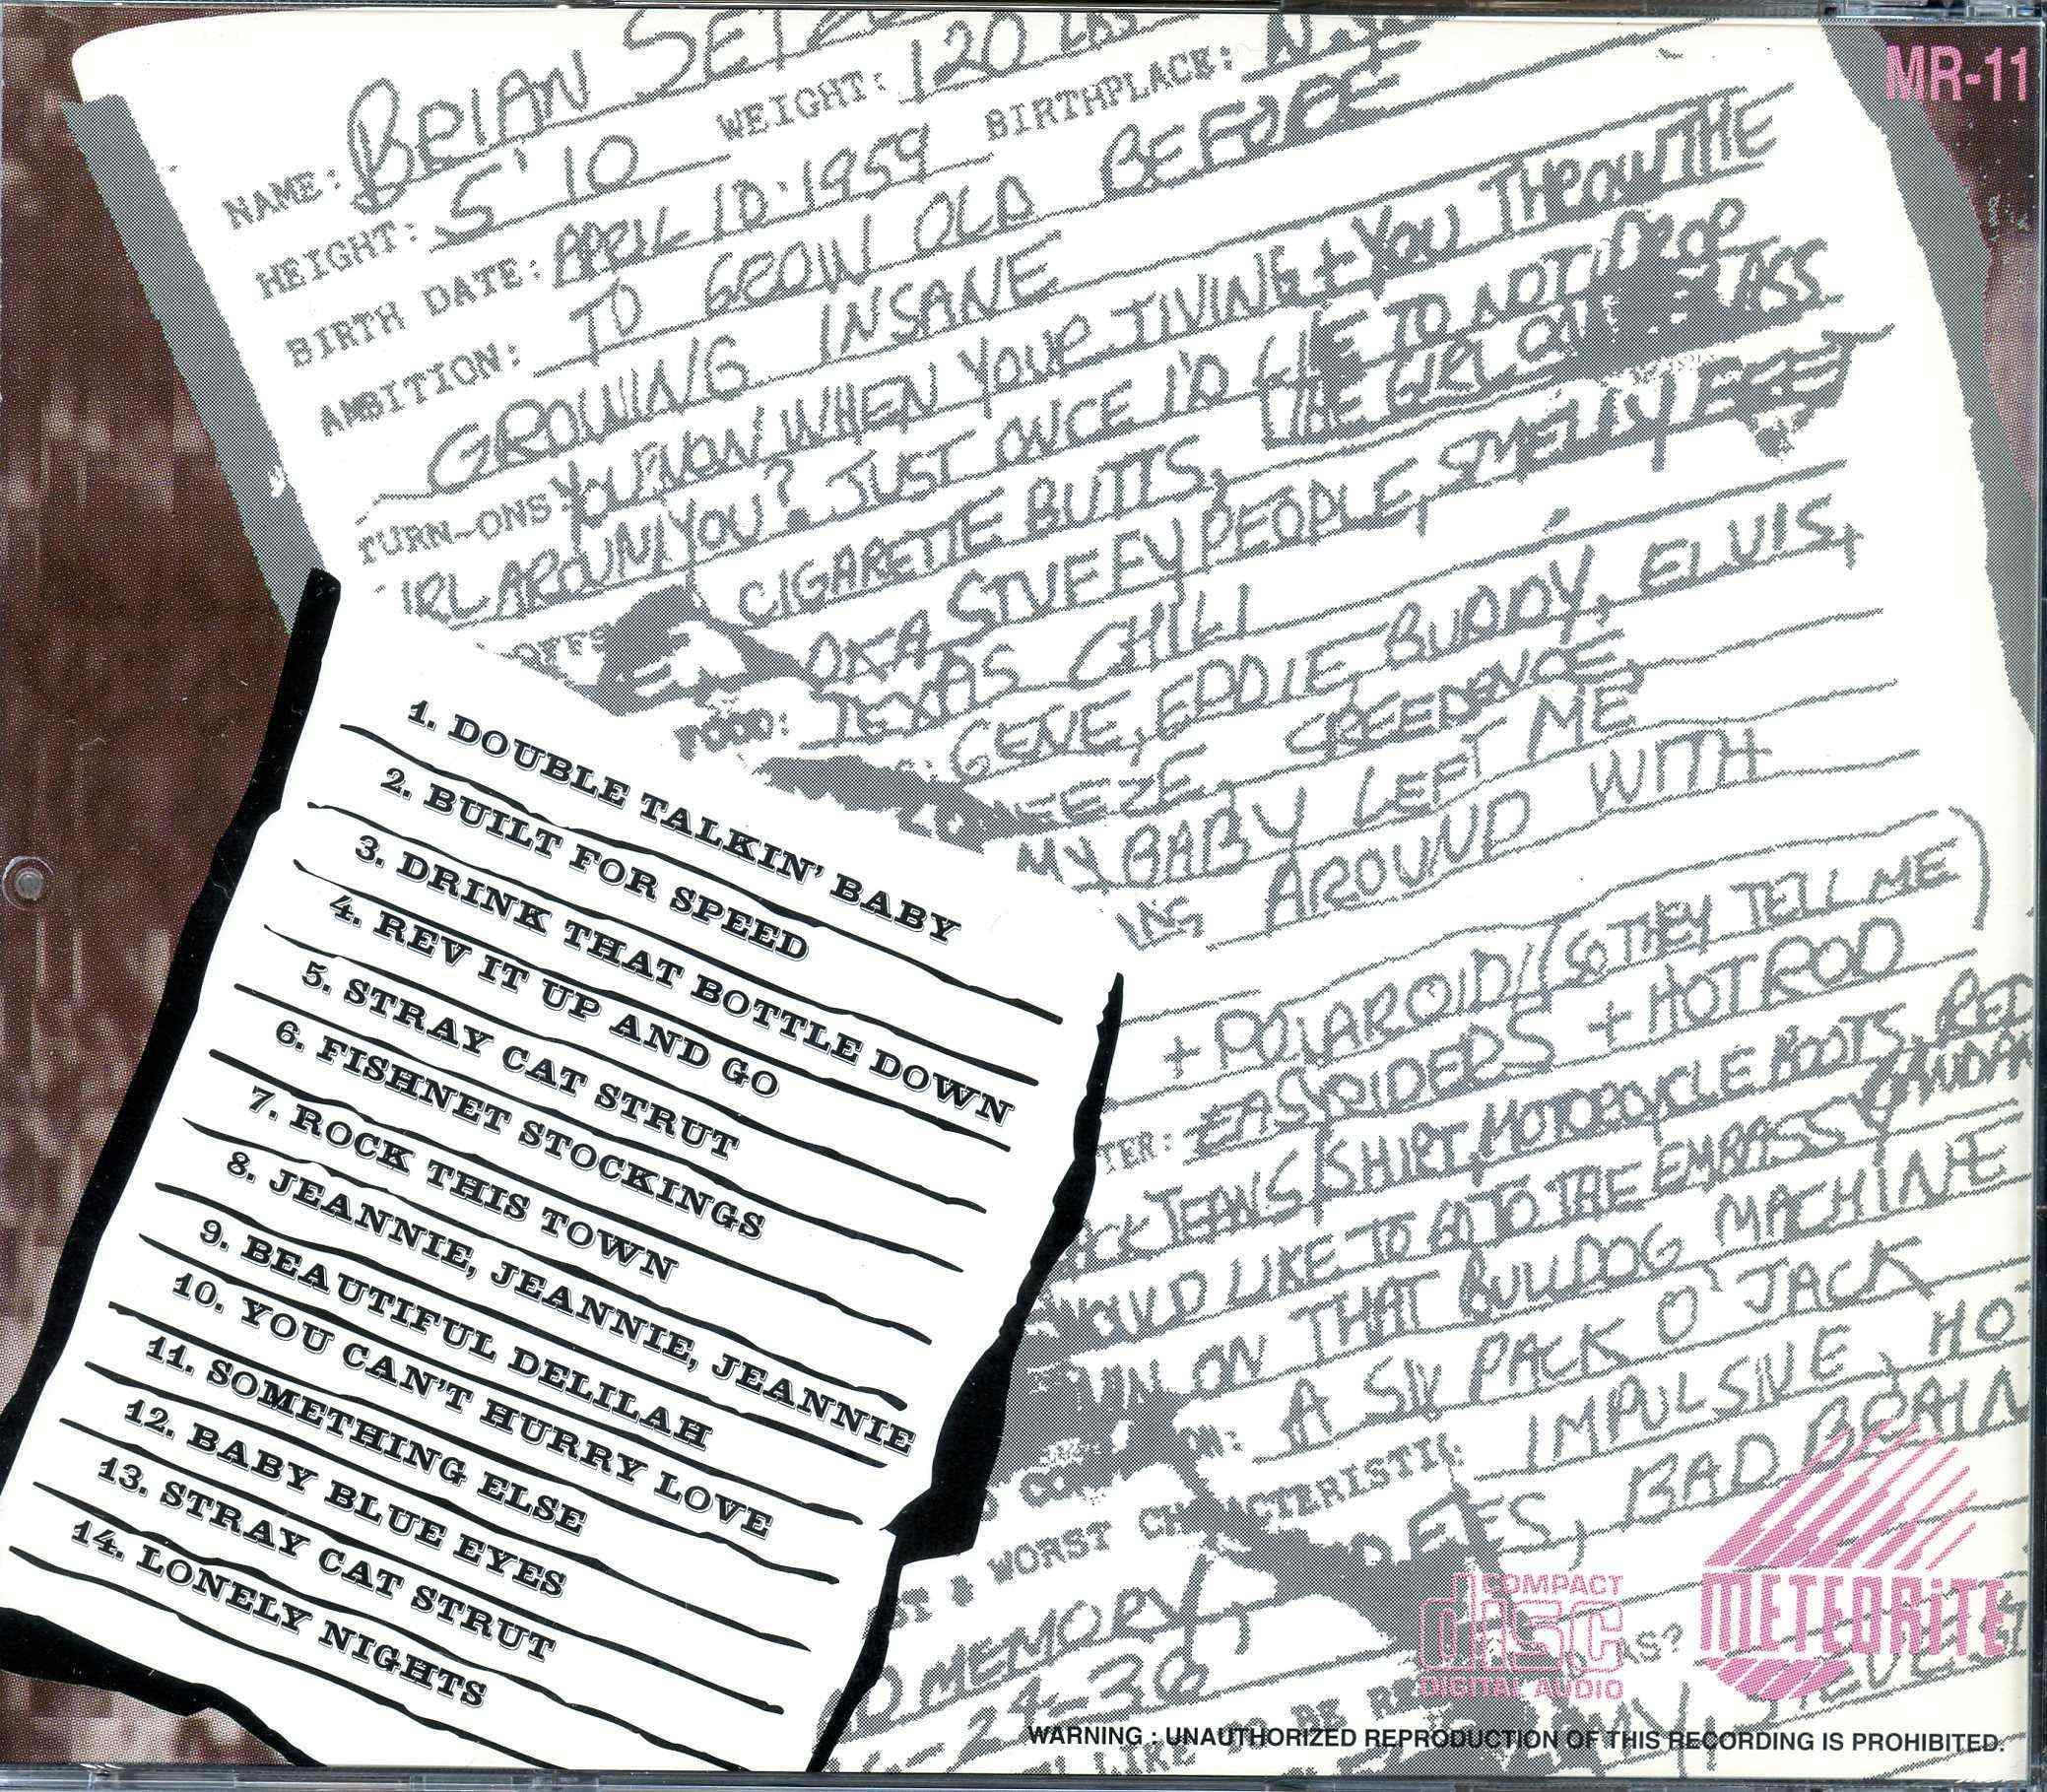 MR-11
NAME: BRIAN
HEIGHT: 5'10 WEIGHT: 120 LBS
BIRTH DATE: APRIL 10·1959 BIRTHPLACE: N.Y.
AMBITION: TO GROW OLD BEFORE
GROWING INSANE
TURN-ONS: YOU KNOW WHEN YOUR JIVING + YOU THROW THE
IRL AROUN YOU? JUST ONCE I'D LIKE TO NOT DROP
CIGARETTE BUTTS, THE GIRL ASS
STUFFY PEOPLE, SMELLY FEET
FOOD: TEXAS CHILI
GENE, EDDIE, BUDDY, ELVIS,
CREEDENCE,
MY BABY LEFT ME
ING AROUND WITH
+ POLAROID (SO THEY TELL ME)
TER: EASYRIDERS + HOT ROD
ACK JEANS, SHIRT, MOTORCYCLE BOOTS, RED
WOULD LIKE TO GO TO THE EMBASSY
ON THAT BULLDOG MACHINE
ON: A SIX PACK O' JACK
& WORST CHARACTERISTIC: IMPULSIVE, HO
BAD BRAIN
MEMORY,
-24-36
LIKE TO BE RE
1. DOUBLE TALKIN' BABY
2. BUILT FOR SPEED
3. DRINK THAT BOTTLE DOWN
4. REV IT UP AND GO
5. STRAY CAT STRUT
6. FISHNET STOCKINGS
7. ROCK THIS TOWN
8. JEANNIE, JEANNIE, JEANNIE
9. BEAUTIFUL DELILAH
10. YOU CAN'T HURRY LOVE
11. SOMETHING ELSE
12. BABY BLUE EYES
13. STRAY CAT STRUT
14. LONELY NIGHTS
COMPACT
disc
DIGITAL AUDIO
METEORiTE
WARNING : UNAUTHORIZED REPRODUCTION OF THIS RECORDING IS PROHIBITED.